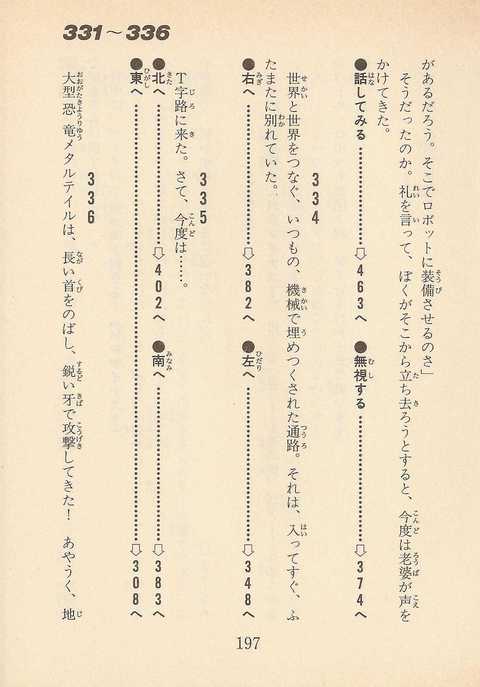 331～336
があるだろう。そこでロボットに装備させるのさ」
そうだったのか。礼を言って、ぼくがそこから立ち去ろうとすると、今度は老婆が声を
かけてきた。
●話してみる…………⇨463へ
●無視する…………⇨374へ
334
世界と世界をつなぐ、いつもの、機械で埋めつくされた通路。それは、入ってすぐ、ふ
たまたに別れていた。
●右へ…………⇨382へ
●左へ…………⇨348へ
335
T字路に来た。さて、今度は……。
●北へ…………⇨402へ
●南へ…………⇨383へ
●東へ…………⇨308へ
336
大型恐竜メタルテイルは、長い首をのばし、鋭い牙で攻撃してきた！　あやうく、地
197